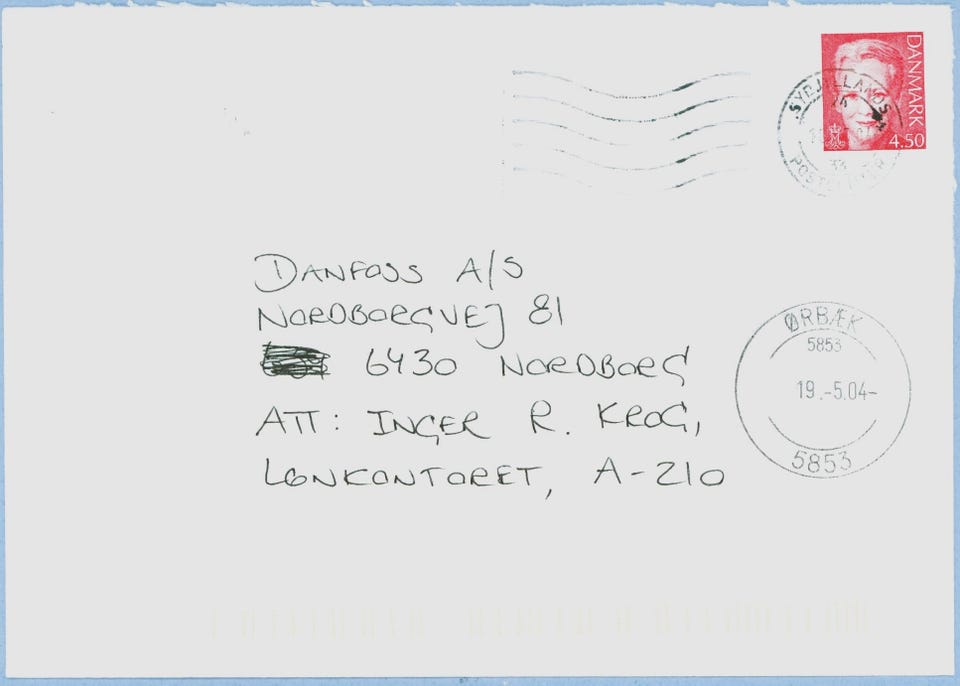 DANMARK
4.50
SYDJYLLANDS
POSTCENTER
DANFOSS A/S
NORDBORGVEJ 81
6430 NORDBORG
ATT: INGER R. KROG,
LØNKONTORET, A-210
ØRBÆK
5853
19.-5.04-
5853